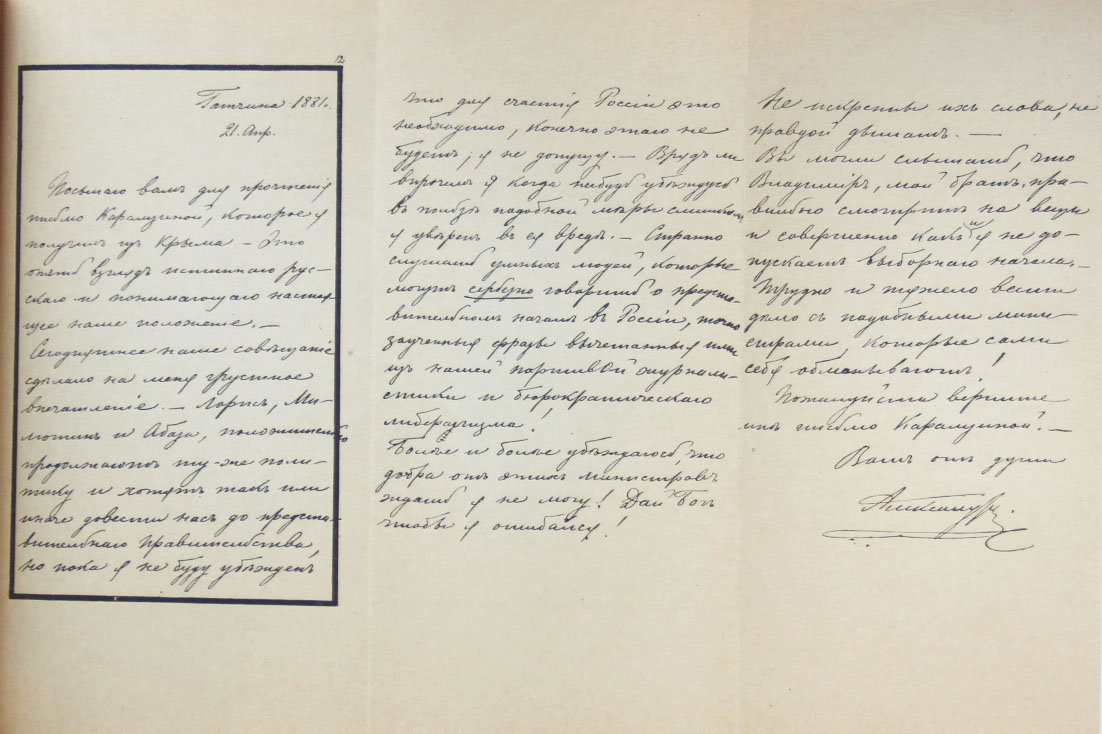 12
Гатчина. 1881.
21. Апр.
Посылаю вамъ для прочтенія
письмо Карамзиной, которое я
получилъ изъ Крыма — Это
опять взглядъ истиннаго рус-
скаго и понимающаго настоя-
щее наше положеніе. —
Сегодняшнее наше совѣщаніе
сдѣлало на меня грустное
впечатлѣніе. — Лорисъ, Ми-
лютинъ и Абаза, положительно
продолжаютъ ту-же поли-
тику и хотятъ такъ или
иначе довести насъ до предста-
вительнаго правительства,
но пока я не буду убѣжденъ
что для счастія Россіи это
необходимо, конечно этаго не
будетъ; я не допущу. — Врядъ ли
впрочемъ я когда нибудь убѣждусь
въ пользѣ подобной мѣры слишкомъ
я увѣренъ въ ея вредѣ. — Странно
слушать умныхъ людей, которые
могутъ серьезно говорить о предста-
вительномъ началѣ въ Россіи, точно
заученныя фразы вычетанныя ими
изъ нашей паршивой журнали-
стики и бюрократическаго
либерализма!
Болѣе и болѣе убѣждаюсь, что
добра отъ этихъ министровъ
ждать я не могу! Дай Богъ
чтобы я ошибался!
Не искренны ихъ слова, не
правдой дышатъ. —
Вы могли слышать, что
Владиміръ, мой братъ, пра-
вильно смотритъ на вещи
и совершенно какъ и я не до-
пускаетъ выборнаго начала. —
Трудно и тяжело вести
дѣло съ подобными мини-
страми, которые сами
себя обманываютъ!
Пожалуйста верните
мнѣ письмо Карамзиной. —
Вашъ отъ души
Александръ.